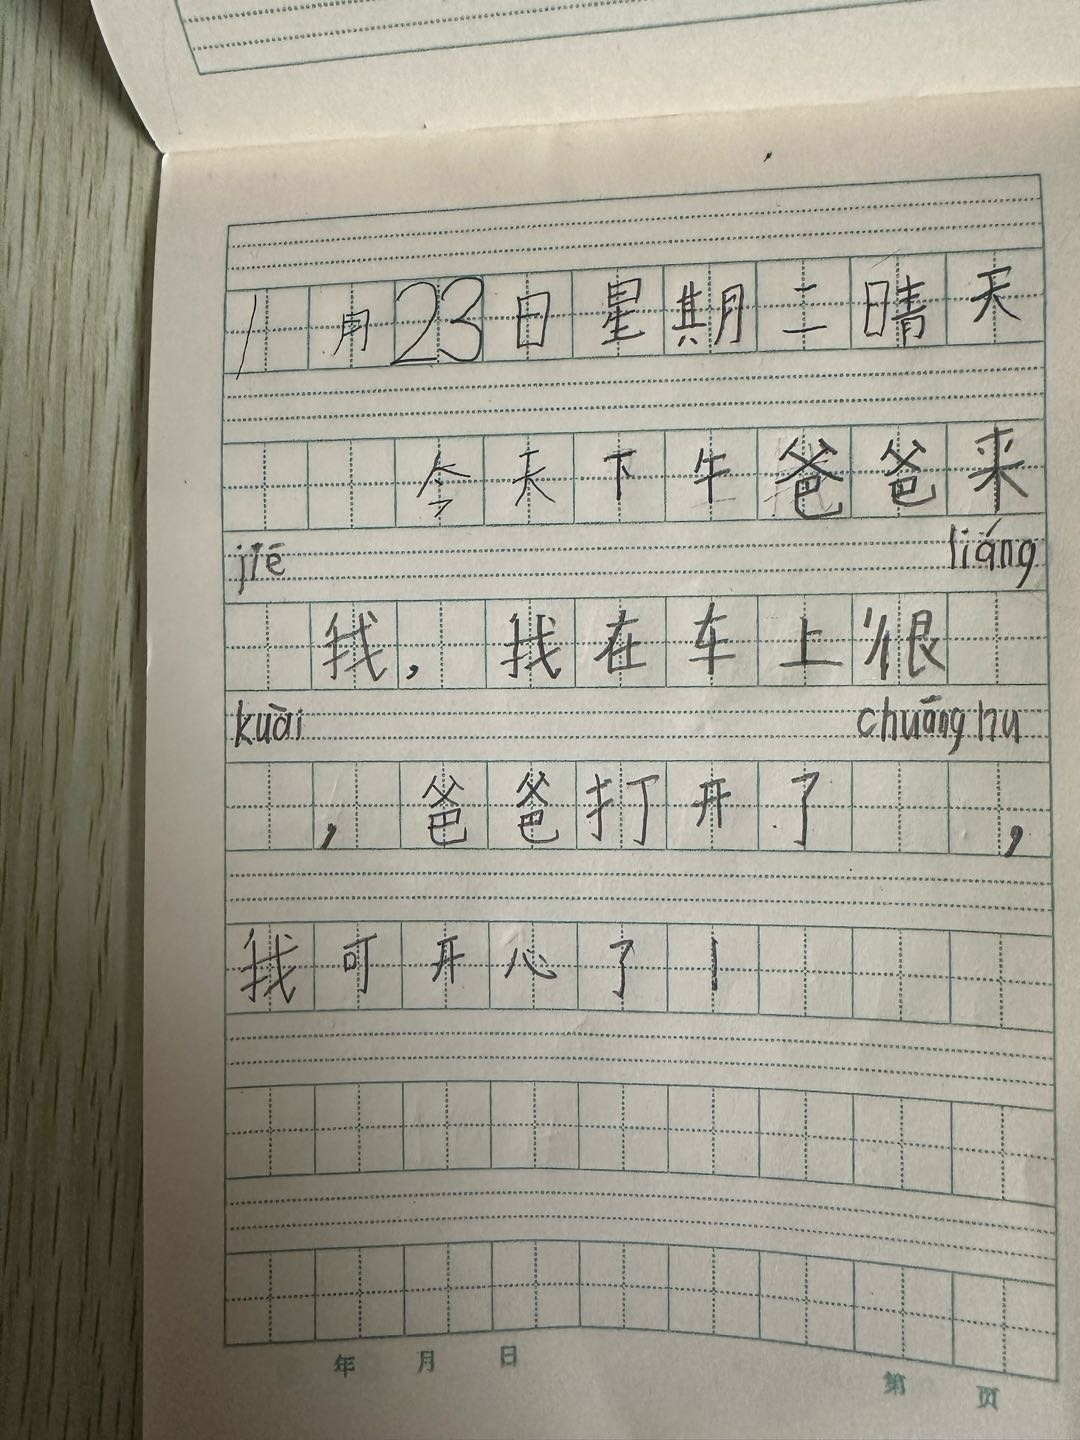 1月23日星期二晴天
今天下午爸爸来
jiē liáng
我,我在车上很
kuài chuāng hu
,爸爸打开了,
我可开心了!
年 月 日 第 页